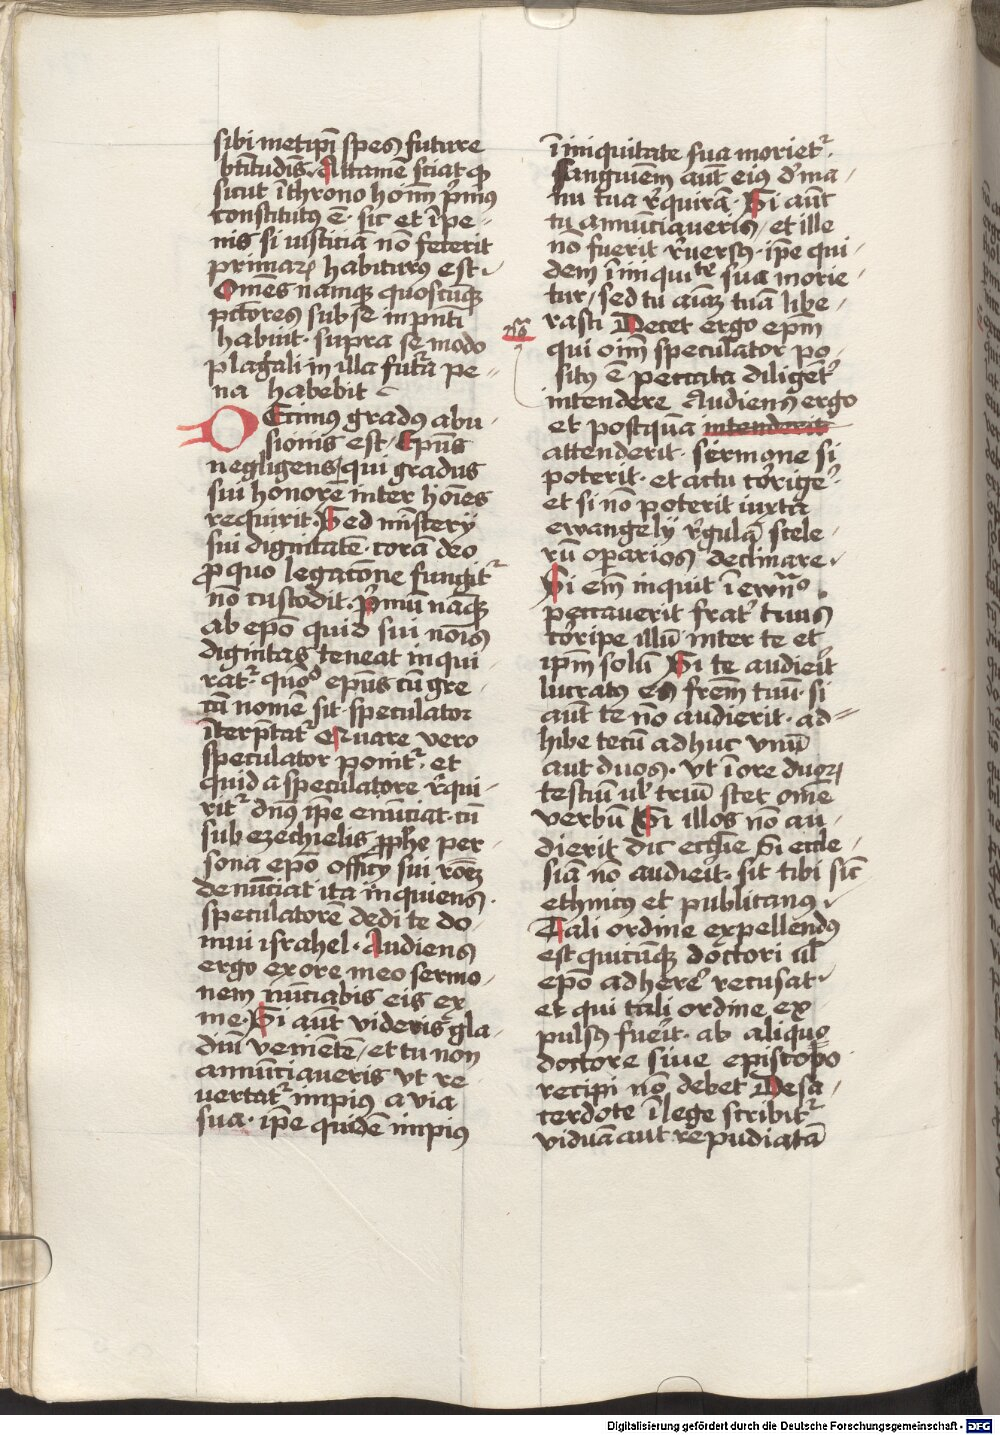 sibi metipi̅ spes future
bt̅itudis̅. Attame̅ sciat ꝙ
sicut i̅ throno hoi̅m p̾mus
constitutꝰ e̅· sic et i̅ pe-
nis si iusticia̅ no̅ fecerit
primaꝝ habiturꝰ est
Om̅es namqꝫ quoscu̅qꝫ
pctores sub se in pn̅ti
habuit· supra se modo
plagali in illa futᷓa pe-
na habebit
DEcimꝰ gradꝰ abu-
sionis est· Epus̅
negligens qui gradus
sui honore̅ inter hoi̅es
requirit· Sed mi̅sterij
sui dignitate̅· cora̅ deo
ꝓ quo legaco̅ne fungitᷣ
no̅ custodit· P̾mu̅ namqꝫ
ab epo̅ quid sui noi̅s
dignitas teneat inqui-
ratᷣ· quo̅ epu̅s cu̅ gre-
cu̅ nome̅ sit· speculator
i̅terp̅tatᷣ Quare vero
speculator ponitᷣ· et
quid a speculatore r̾qui-
ritᷣ dn̅s ip̅e enu̅ciat· cu̅
sub ezechielis ꝓphe̅ per-
sona epo̅ officij sui ro̅eꝫ
denu̅ciat ita inquiens·
speculatore̅ dedi te do-
mui israhel· Audiens
ergo ex ore meo sermo-
nem nu̅ciabis eis ex
me· Si au̅t videris gla-
diu̅ veniente̅/ et tu non
annu̅ciaveris vt re-
uertatᷣ impiꝰ a via
sua· ip̅e quide̅ impiꝰ
i̅ iniquitate sua morietᷣ·
sanguine̅m au̅t eiꝰ d̾ ma-
nu tua r̾quira̅· Si au̅t
tu annu̅ciaueris/ et ille
no̅ fuerit r̾versꝰ· ip̅e qui-
dem i̅ iniquitate sua morie-
tur/ sed tu ai̅aꝫ tua̅ libe-
rasti Decet ergo ep̅m
qui oi̅m speculator po-
sitꝰ e̅ peccata dilige̅t̾
intendere Audiens ergo
et postqua̅ intenderit
attenderit· sermone si
poterit· et actu cor̾ige̾·
et si no̅ poterit iuxta
ewangelij r̾gula̅ scele-
ru̅ oꝑarios declinare
Si em̅ inquit i̅ ewa̅º
peccauerit frat̾ tuus
cor̾ipe illu̅ inter te et
ip̅m solu̅ Si te audieri̅t
lucratꝰ es fre̅m tuu̅· si
au̅t te no̅ audierit· ad-
hibe tecu̅ adhuc vnu̅
aut duos· vt i̅ ore duoꝝ
testiu̅ ul̾ triu̅ stet om̅e
verbu̅ Si illos no̅ au-
dierit dic eccl̅ie Si eccle-
sia̅ no̅ audieit̅· sit tibi sic̅
ethnicꝰ et publicanꝰ
Tali ordine expellendꝰ
est quicu̅qꝫ doctori ul̅
epo̅ adhere̾ recusat·
et qui tali ordine ex
pulsꝰ fuei̅t· ab aliquo
doctore siue episcopo
recipi no̅ debet De sa-
cerdote i̅ lege scribitᷣ
vidua̅ aut repudiata̅
Digitalisierung gefördert durch die Deutsche Forschungsgemeinschaft - DFG